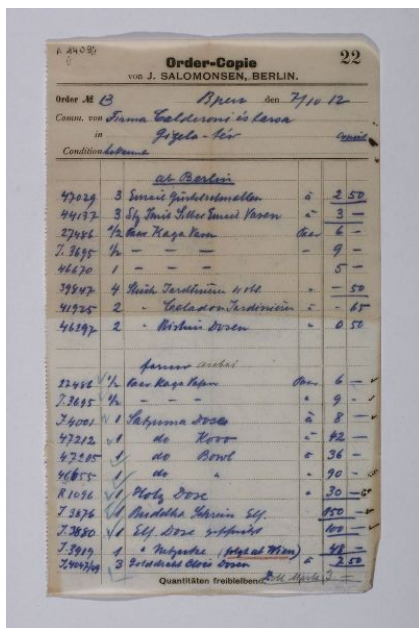 22
Order-Copie
von J. SALOMONSEN, BERLIN.
Order № 13 den 7/10 12
Comm. von Firma Calderoni és társa
in Gizela-tér
Condition bekannt
ab Berlin
47029 3 Email à 2 50
44137 3 Stg Email Vasen à 3 –
27486 1/2 Paar Kaga Vasen Paar 6 –
J.3695 1/2 – – – " 9 –
46670 1 – – – 5 –
39847 4 Stück – 50
41925 2 " Celadon Jardinièren " – 65
46297 2 " Dosen " 0 50
ferner
27486 1/2 Paar Kaga Vasen Paar 6 –
J.3695 1/2 – – – " 9 –
J.4001 1 Satsuma Dose à 8 –
47212 1 do Koro " 42 –
47205 1 do Bowl " 36 –
46655 1 do " " 90 –
R1096 1 Holz Dose " 30 –
J.3876 1 Buddha Schrein Elf. 150 –
J.3880 1 Elf. Dose 100 –
J.3919 1 " Netzuke (folgt ab Wien) 48 –
J.4047/49 3 Dosen à 2 50
Quantitäten freibleibend.